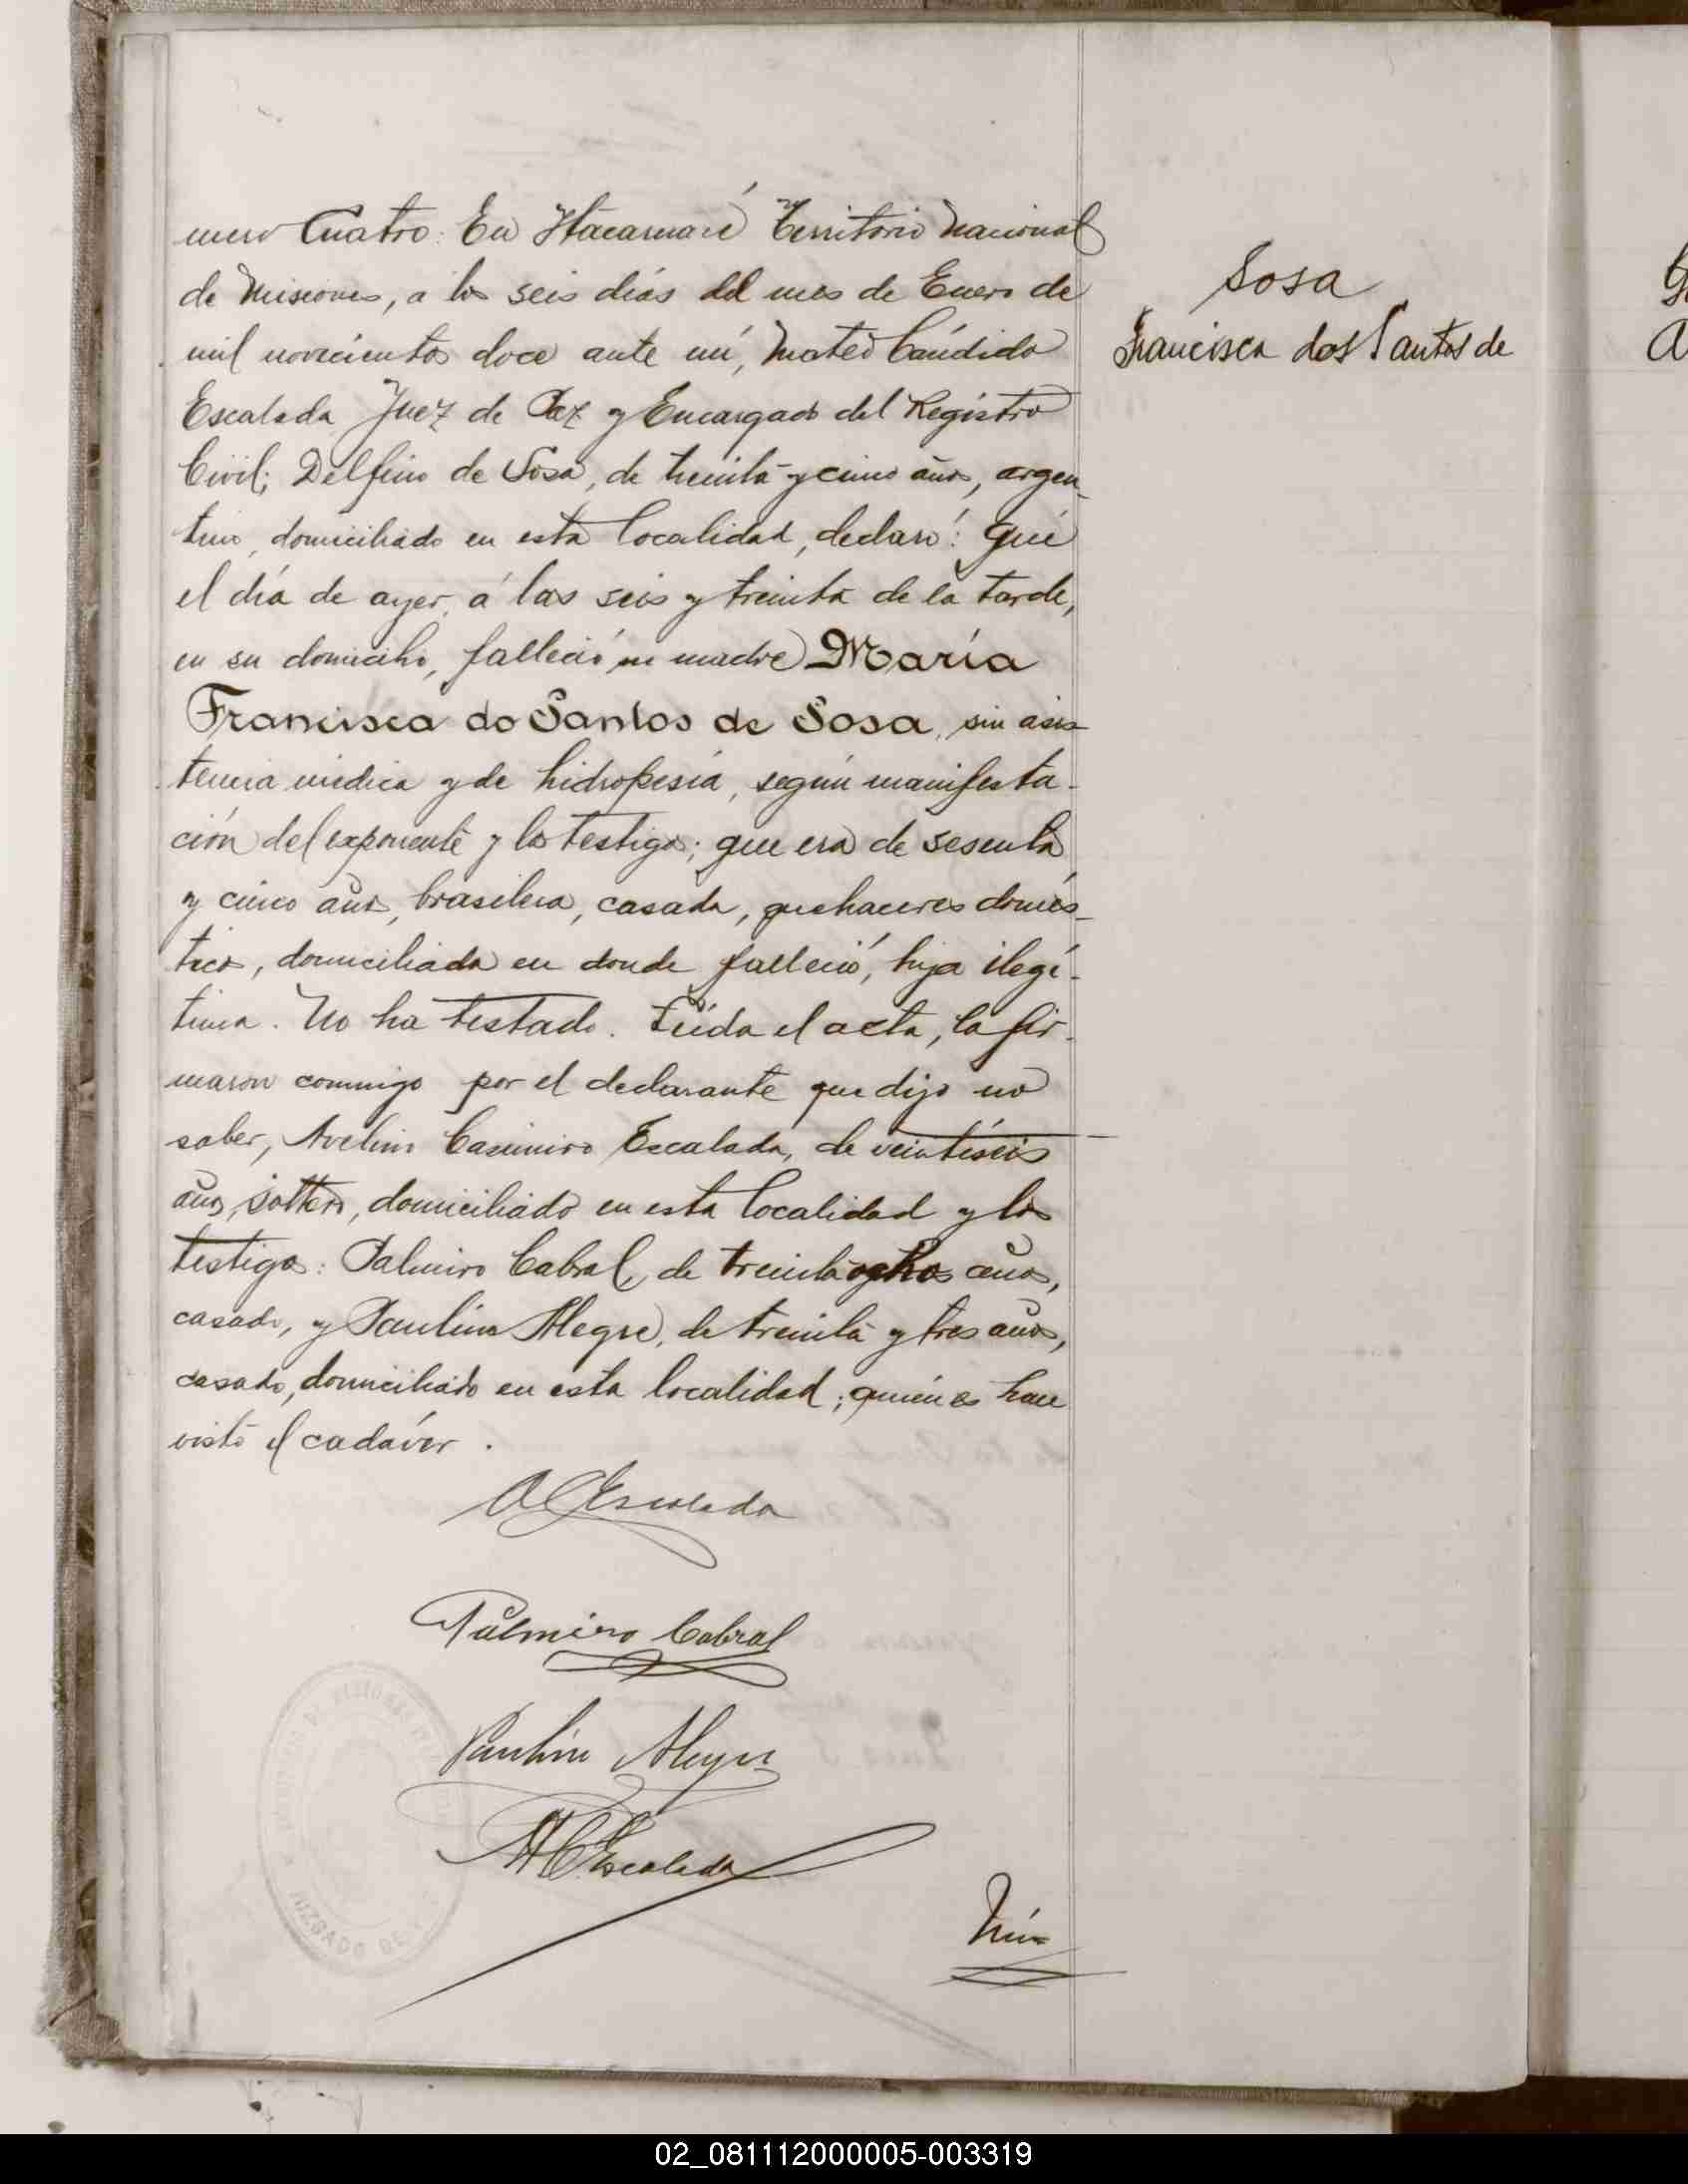 mero Cuatro: En Itacaruaré Territorio Nacional
de Misiones, a los seis días del mes de Enero de
mil novecientos doce ante mí, Mateo Cándido
Escalada Juez de Paz y Encargado del Registro
Civil; Delfino de Sosa, de treinta y cinco años, argen-
tino, domiciliado en esta localidad, declaró: Que
el día de ayer, á las seis y treinta de la tarde,
en su domicilio, falleció su madre María
Francisca do Santos de Sosa, sin asis-
tencia médica y de hidropesía, según manifesta-
ción del exponente y los testigos; que era de sesenta
y cinco años, brasilera, casada, quehaceres domés-
ticos, domiciliada en donde falleció, hija ilegí-
tima. No ha testado. Leída el acta, la fir-
maron conmigo por el declarante que dijo no
saber, Avelino Casimiro Escalada, de veintiséis
años, soltero, domiciliado en esta localidad y los
testigos: Palmiro Cabral, de treinta años,
casado, y Paulino Alegre, de treinta y tres años,
casado, domiciliado en esta localidad; quienes han
visto el cadáver.
Sosa
Francisca dos Santos de
A C Escalada
Palmiro Cabral
Paulino Alegre
M C Escalada
JUZGADO DE
Nú-
02_081112000005-003319